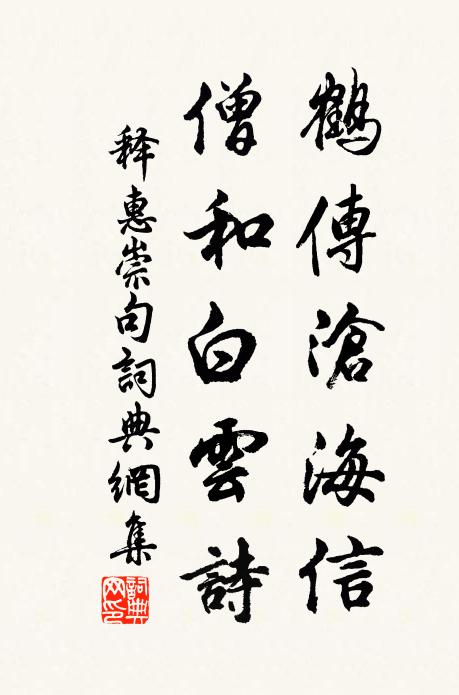 鶴傳滄海信
僧和白雲詩
释惠崇句詞典網集
詞典网印